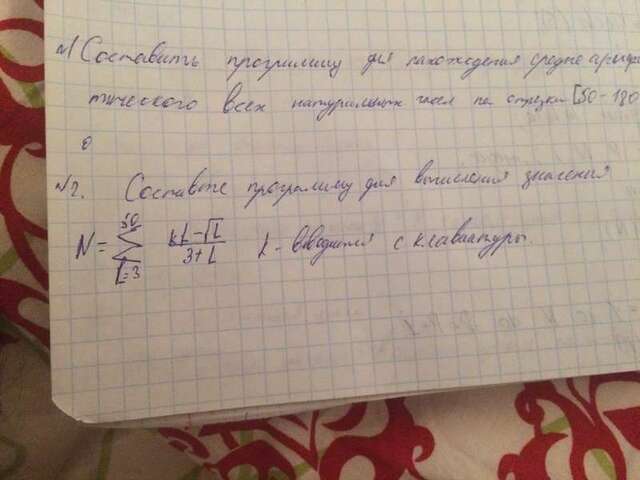 №1 Составить программу для нахождения средне арифме
тического всех натуральных чисел на отрезке [50-180
№2. Составте программу для вычисления значения
50
N = Σ kL-√L / 3+L k - вводится с клавиатуры.
L=3